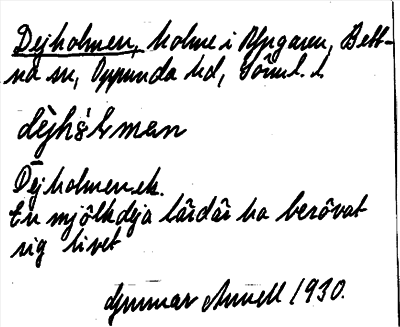 Dejholmen, holme i Yngaren, Bett-
na sn, Oppunda hd, Söml. l.
dèjhɷ̀lman
Dejholmen ek.
En mjölkdeja lärdär ha berövat
sig livet
Gunnar Annell 1930.